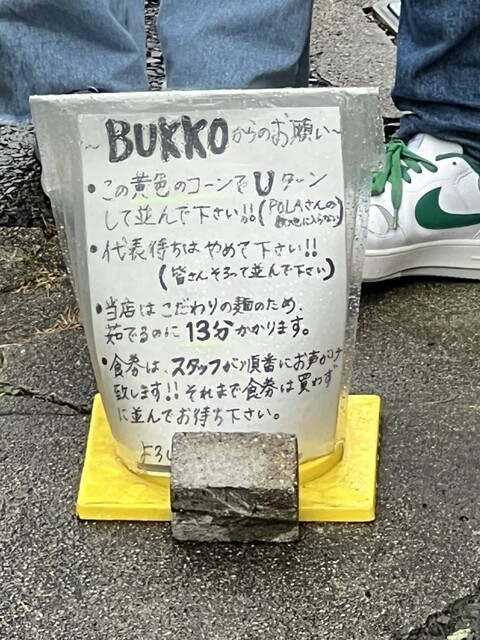 ~BUKKOからのお願い~
・この黄色のコーンでUターン
して並んで下さい!!(POLAさんの
敷地に入らない)
・代表待ちはやめて下さい!!
(皆さんそろって並んで下さい)
・当店はこだわりの麺のため、
茹でるのに13分かかります。
・食券は、スタッフが順番にお声がけ
致します!!それまで食券は買わず
に並んでお待ち下さい。
よろ